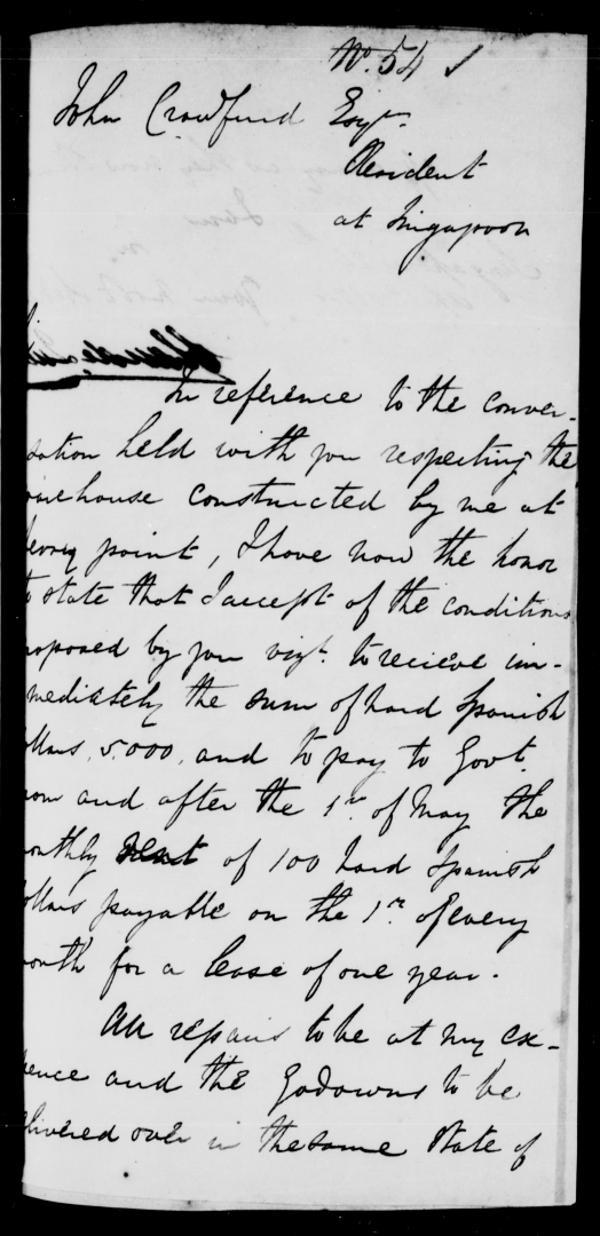 No. 54
John Crawfurd Esqr.
Resident
at Singapore
In reference to the conver-
sation held with you respecting the
warehouse constructed by me at
ferry point, I have now the honor
to state that I accept of the conditions
proposed by you vizt. to recieve im-
mediately the sum of hard Spanish
ollars 5.000, and to pay to Govt.
rom and after the 1st. of May the
onthly rent of 100 hard Spanish
ollars payable on the 1st. of every
onth for a lease of one year.
All repairs to be at my ex-
pence and the Godowns to be
elivered over in the same state of